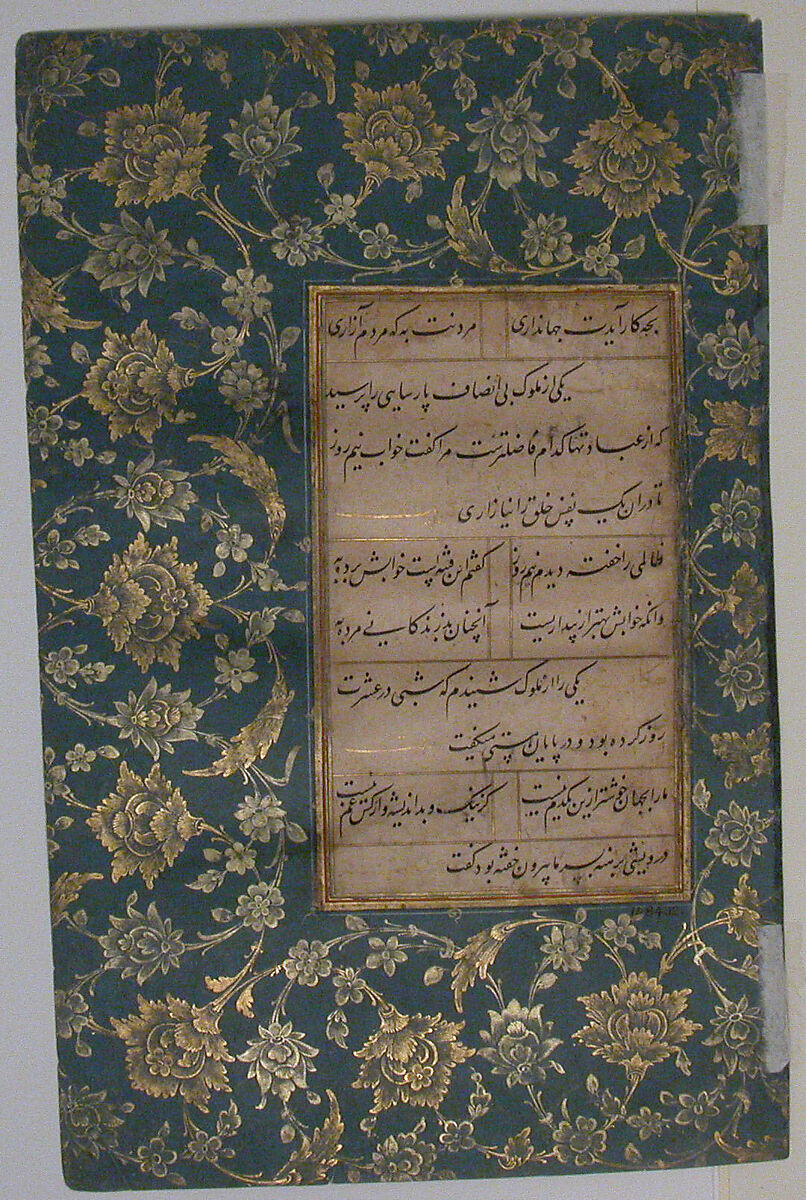 بچه کار آیدت جهانداری مردنت به که مردم آزاری
یکی از ملوک بی انصاف پارسایی را پرسید
که از عبادتها کدام فاضلترست مرا گفت خواب نیم روز
تا دران یک نفس خلق را نیازاری
ظالمی را خفته دیدم نیم روز گفتم این فتنه است خوابش برده به
وانکه خوابش بهتر از بیداریست آنچنان بد زندگانی مرده به
یکی را از ملوک شنیدم که شبی در عشرت
روز کرده بود و در پایان مستی میگفت
ما را بجهان خوشتر ازین یکدم نیست کز نیک و بد اندیشه و از کس غم نیست
درویشی برهنه بسرما برون خفته بود گفت